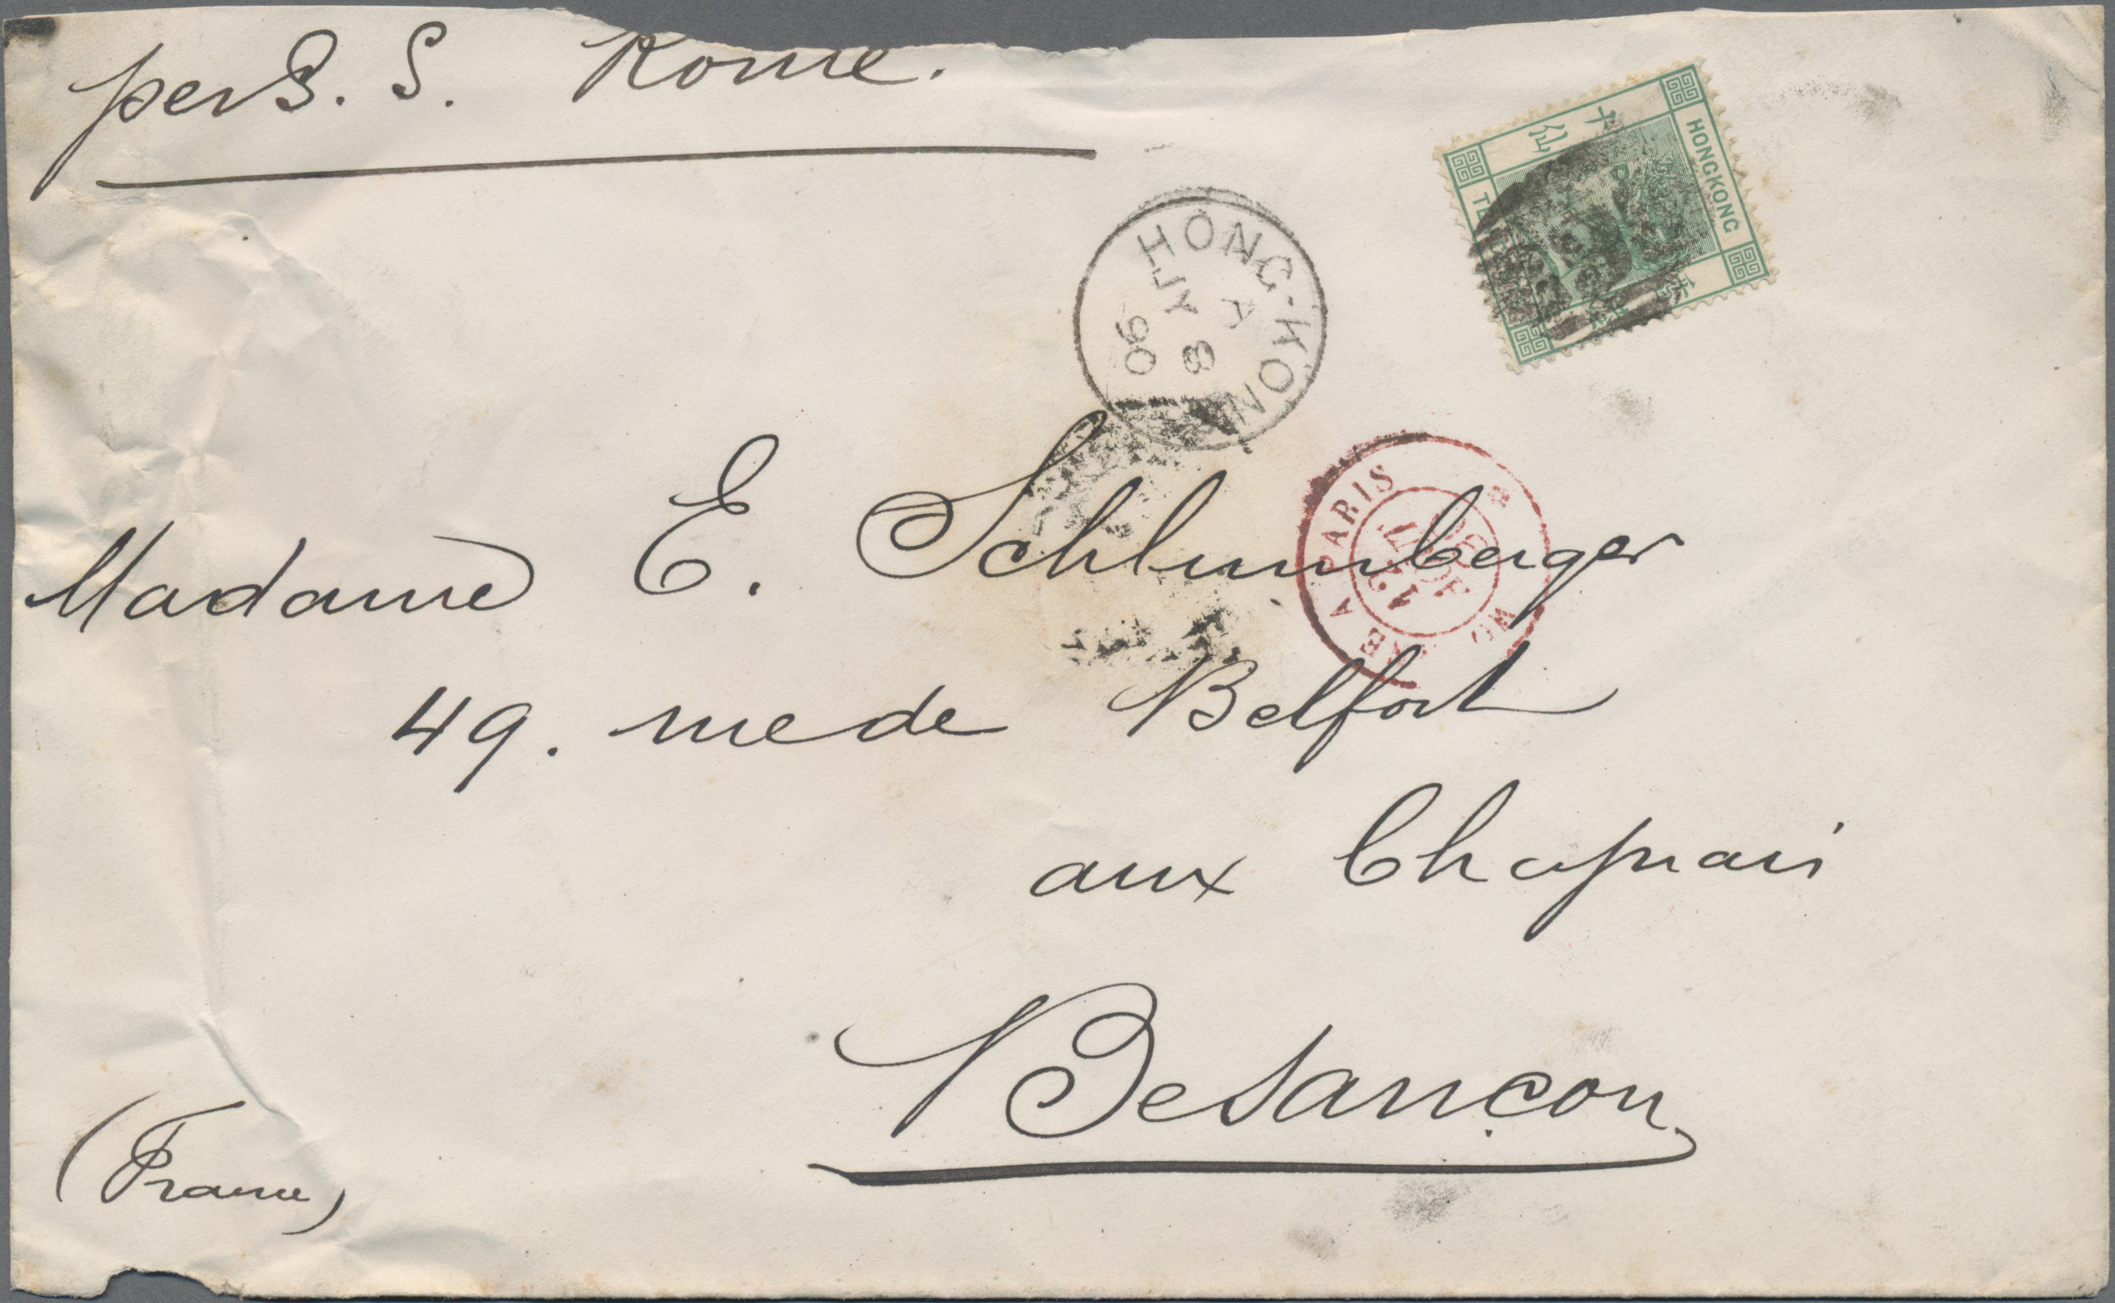 per S. S. Rome.
HONGKONG
十
HONG-KONG
A
JY 8
90
PARIS
Madame E. Schlumberger
49. rue de Belfort
aux Chaprais
Besançon
(France)